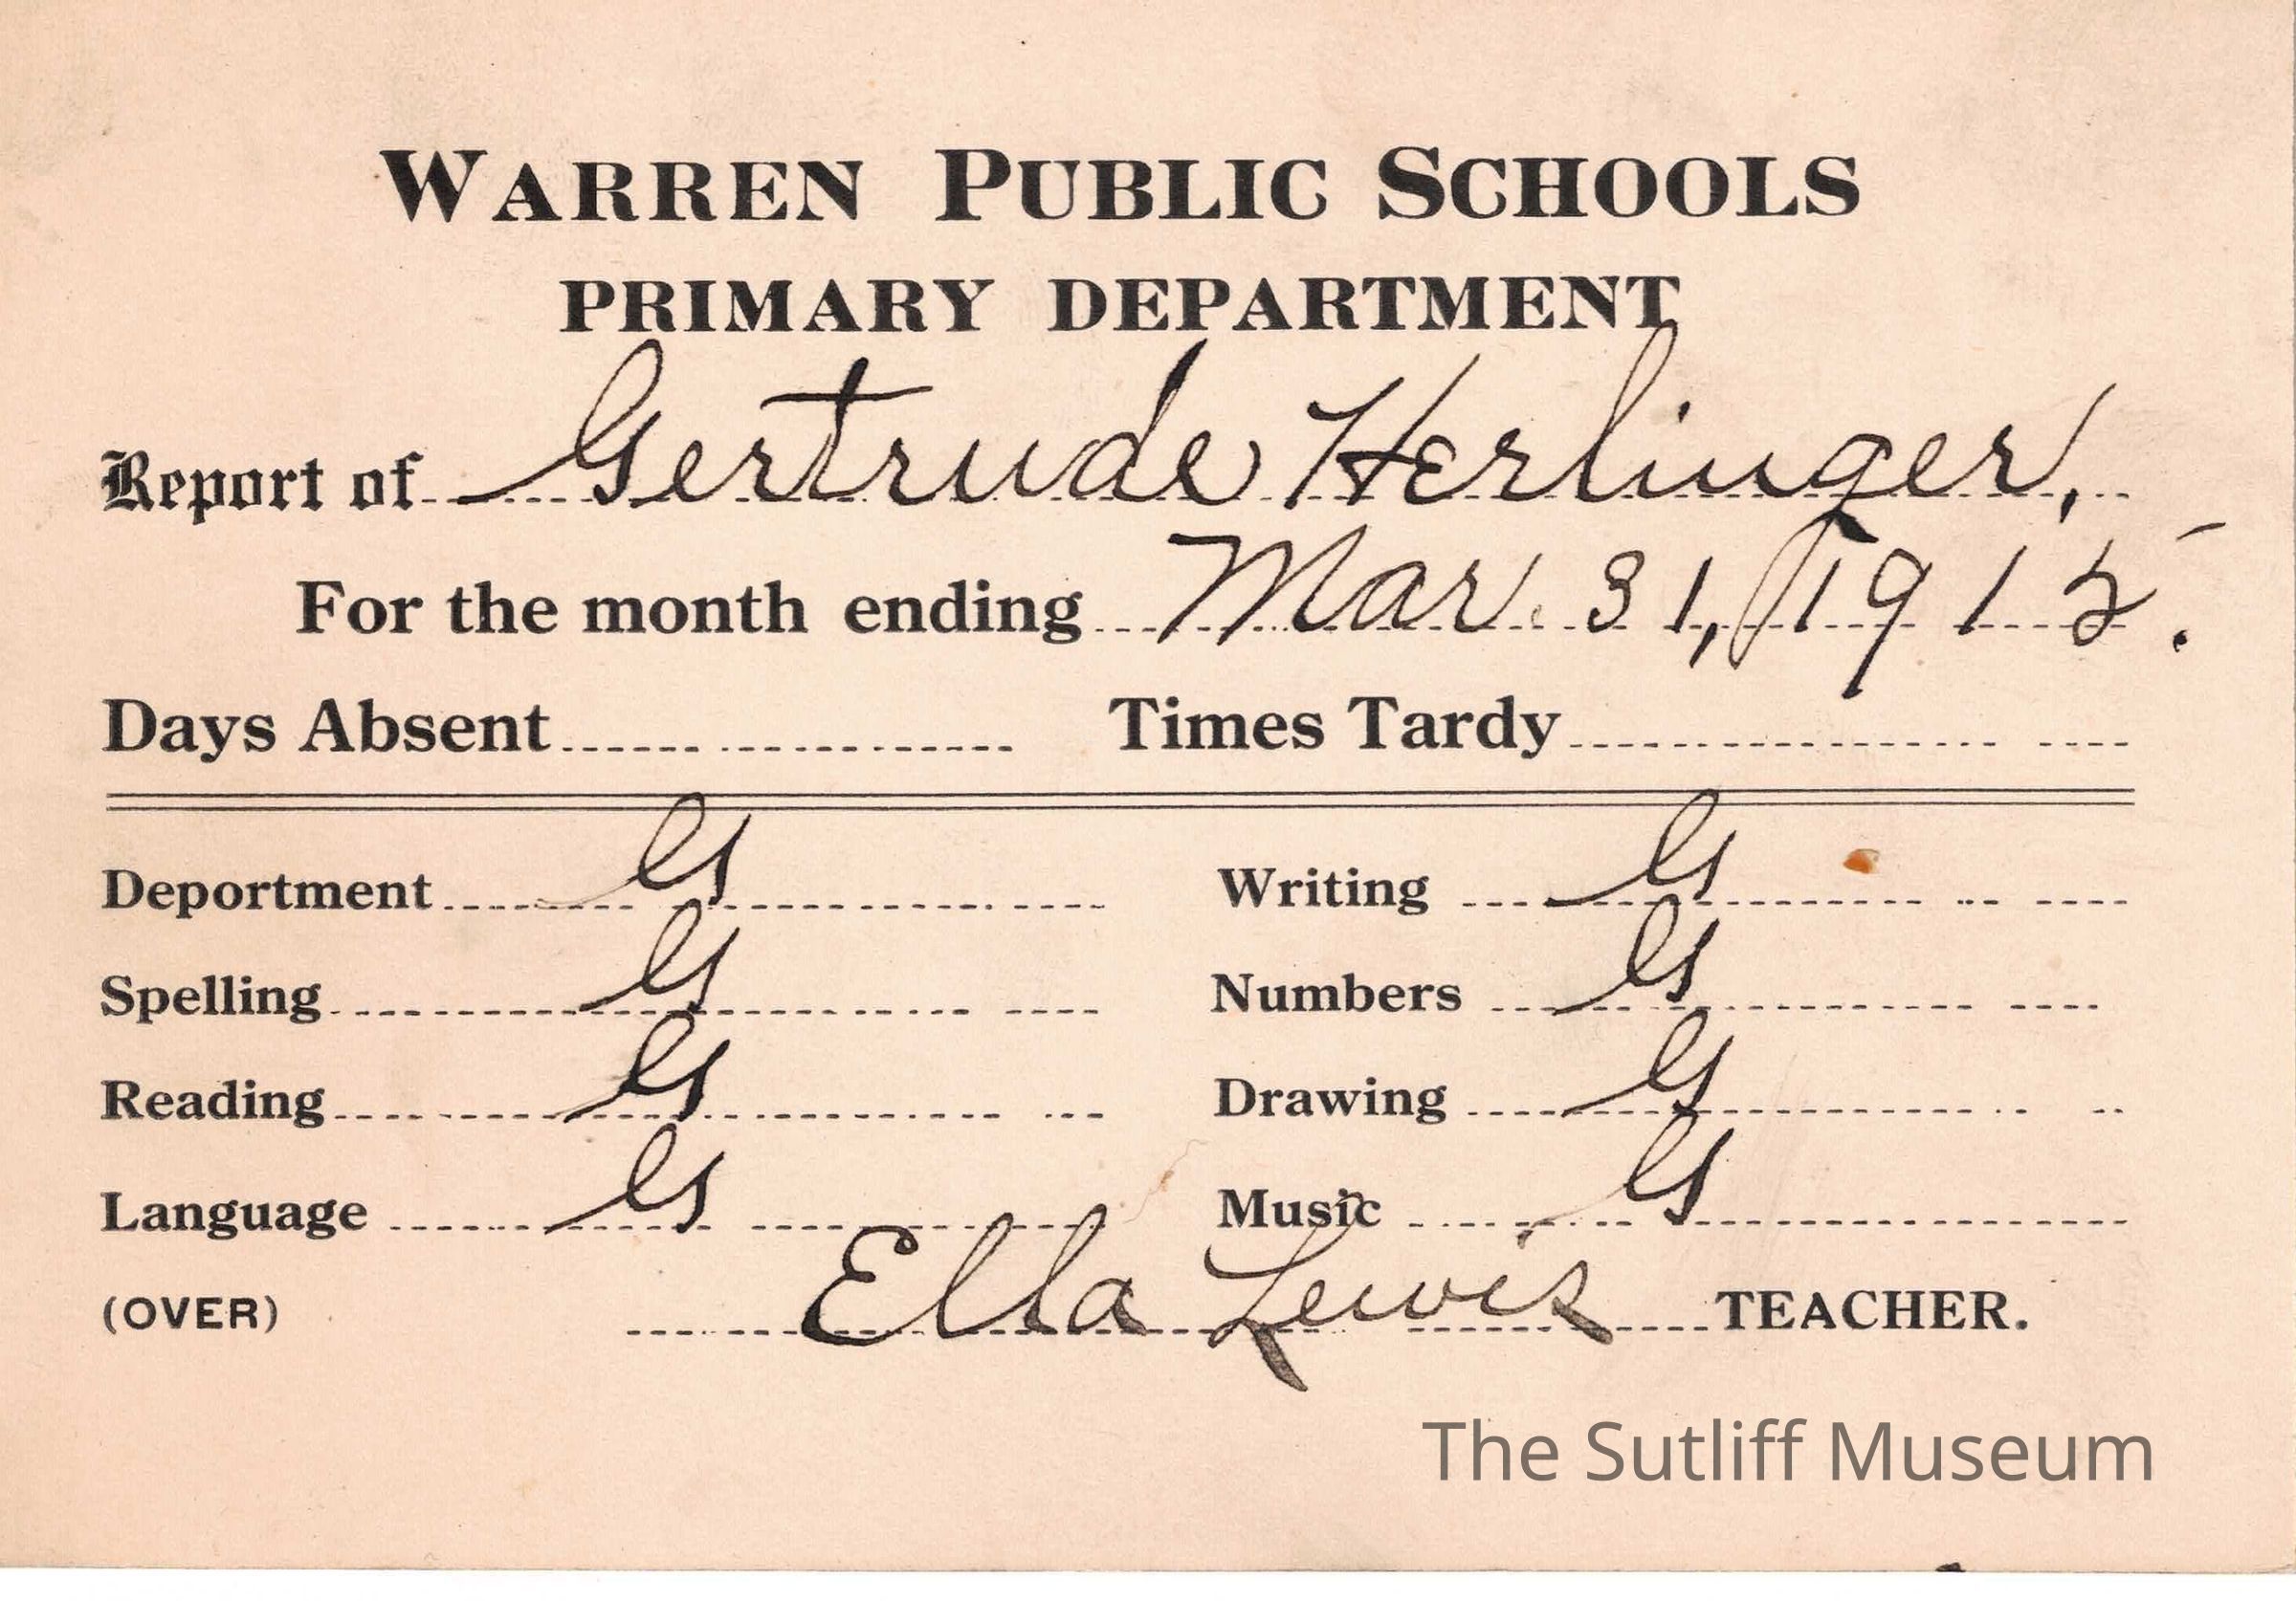 WARREN PUBLIC SCHOOLS
PRIMARY DEPARTMENT
Report of Gertrude Herlinger,
For the month ending Mar. 31, 1915.
Days Absent Times Tardy
Deportment G Writing G
Spelling G Numbers G
Reading G Drawing G
Language G Music G
(OVER) Ella Lewis TEACHER.
The Sutliff Museum